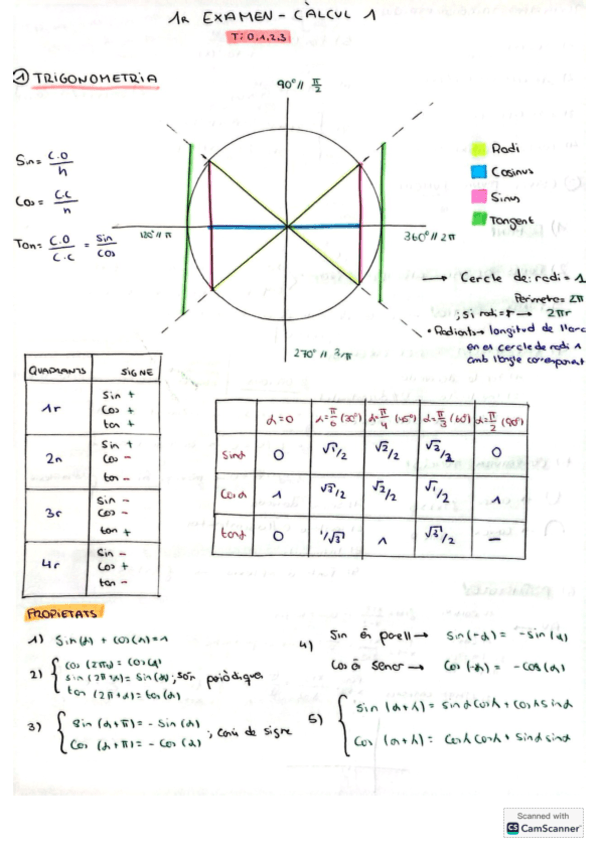 1R EXAMEN - CÀLCUL 1
T: 0,1,2,3
① TRIGONOMETRIA
90º // π/2
Sin = C.O/h
Cos = C.C/h
Tan = C.O/C.C = sin/cos
Radi
Cosinus
Sinus
Tangent
π
360º // 2π
→ Cercle de: radi = 1
Perímetre = 2π
; si radi = r → 2πr
• Radiants → longitud de l'arc
en el cercle de radi 1
amb l'angle corresponent
270º //
QUADRANTS SIGNE
1r sin + cos + tan +
2n sin + cos - tan -
3r sin - cos - tan +
4r sin - cos + tan -
α=0 α=π/6 (30º) α=π/4 (45º) α=π/3 (60º) α=π/2 (90º)
sinα 0 √1/2 √2/2 √3/2 0
cosα 1 √3/2 √2/2 √1/2 1
tanα 0 1/√3 1 √3/2 -
PROPIETATS
1) sin(α) + cos(α) = 1
2) cos (2πα) = cos(α)
sin (2π+α) = sin(α) ; són periòdiques
tan (2π+α) = tan(α)
3) sin (α+π) = - sin(α)
cos (α+π) = - cos(α) ; canvi de signe
4) Sin és parell → sin(-α) = -sin(α)
Cos és senar → cos(-α) = -cos(α)
5) sin (α+
cos (α+
Scanned with
CS CamScanner